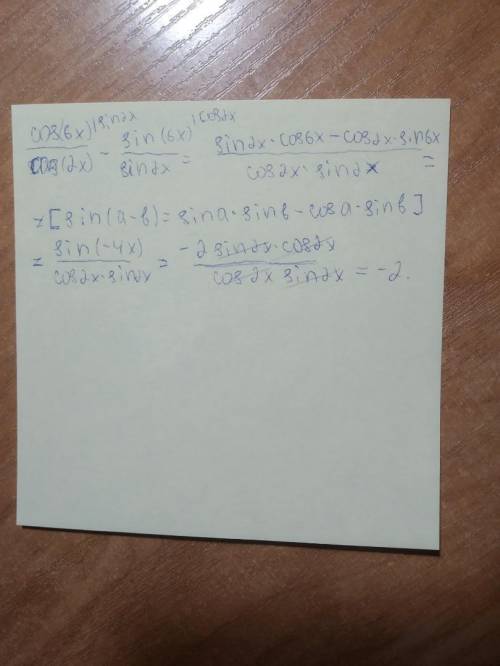 cos(6x)|sin2x / cos(2x) - sin(6x)|cos2x / sin2x = sin2x·cos6x - cos2x·sin6x / cos2x·sin2x =
= [sin(a-b) = sina·sinb - cosa·sinb]
= sin(-4x) / cos2x·sin2x = -2sin2x·cos2x / cos2x sin2x = -2.